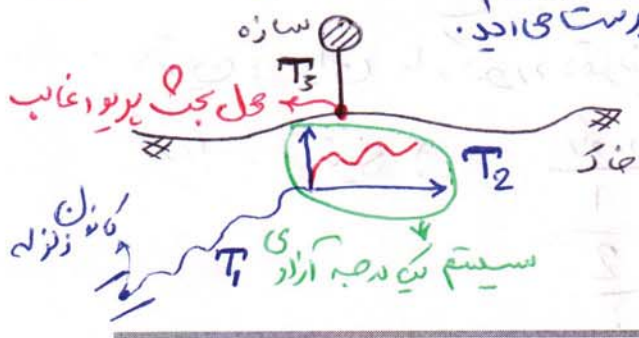 بدست می‌آید.
سازه
T3
محل بحث پریود غالب
خاک
T2
کانون
زلزله
T1
سیستم یک درجه آزادی